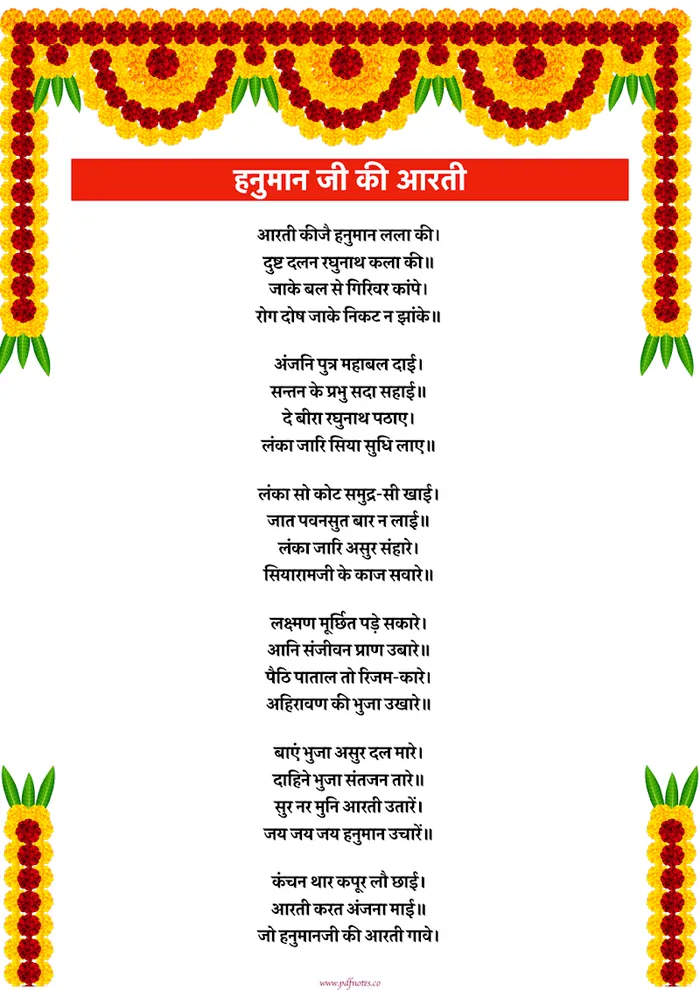 हनुमान जी की आरती
आरती कीजै हनुमान लला की।
दुष्ट दलन रघुनाथ कला की॥
जाके बल से गिरिवर कांपे।
रोग दोष जाके निकट न झांके॥
अंजनि पुत्र महाबल दाई।
सन्तन के प्रभु सदा सहाई॥
दे बीरा रघुनाथ पठाए।
लंका जारि सिया सुधि लाए॥
लंका सो कोट समुद्र-सी खाई।
जात पवनसुत बार न लाई॥
लंका जारि असुर संहारे।
सियारामजी के काज सवारे॥
लक्ष्मण मूर्छित पड़े सकारे।
आनि संजीवन प्राण उबारे॥
पैठि पाताल तो रिजम-कारे।
अहिरावण की भुजा उखारे॥
बाएं भुजा असुर दल मारे।
दाहिने भुजा संतजन तारे॥
सुर नर मुनि आरती उतारें।
जय जय जय हनुमान उचारें॥
कंचन थार कपूर लौ छाई।
आरती करत अंजना माई॥
जो हनुमानजी की आरती गावे।
www.pdfnotes.co